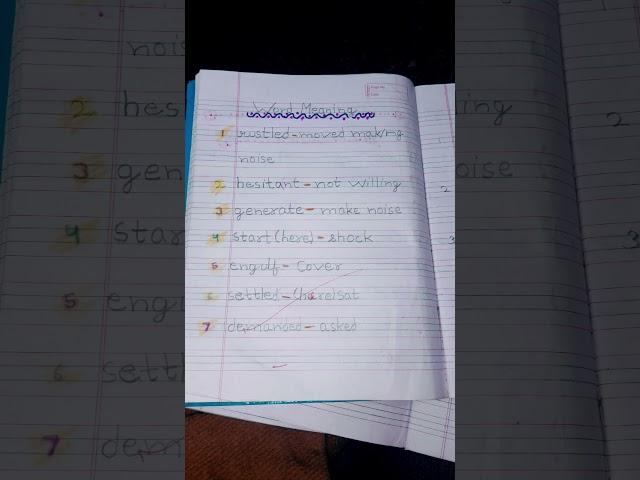 Word Meaning
1 rustled-moved making
noise
2 hesitant-not willing
3 generate-make noise
4 start(here)-shock
5 engulf-Cover
6 settled-(here)sat
7 demanded-asked